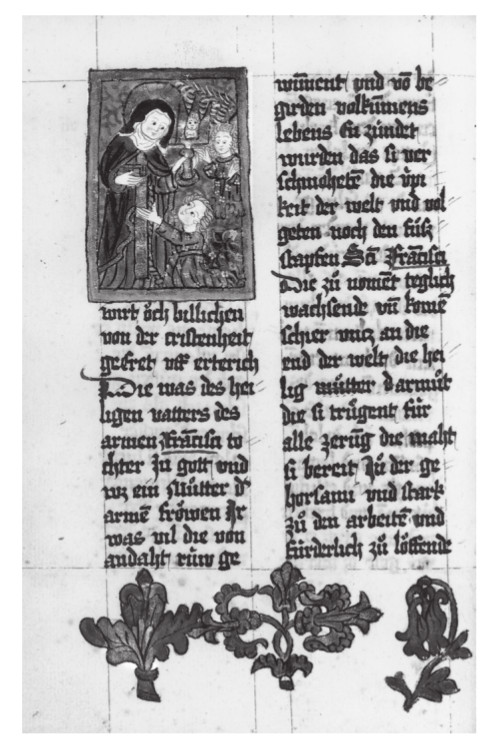 wirt öch billichen
von der cristenheit
geeret vff erterich
Die was des hei
ligen vatters des
armen Francisci to
chter zu gott vnd
wz ein Mutter d'
armē fröwen Jr
was vil die von
andaht rüw ge
wūnent vnd vō be
girden volkumens
lebens en zündet
wurden das si ver
schmohetē die vpi
keit der welt vnd vol
geten noch den fůsz
stapfen Scti Frācisci
Die zů nomēt teglich
wachsende vn̄ komē
schier vncz an die
end der welt die hei
lig můtter d'armůt
die si trůgent für
alle zerūg die maht
si bereit zů der ge
horsami vnd stark
zů den arbeitē vnd
fürderlich zů löffende